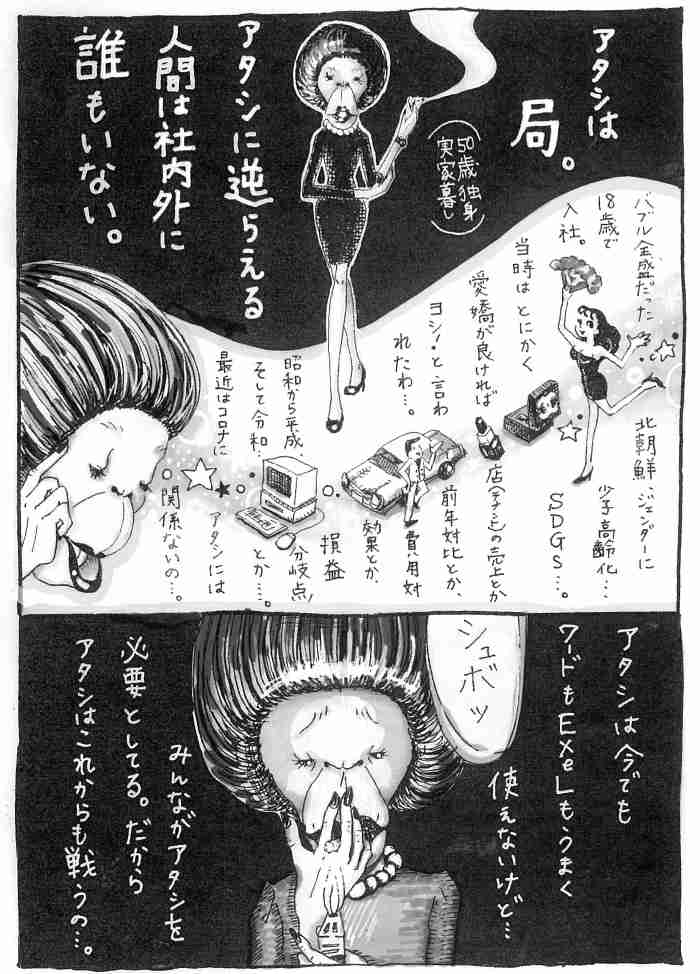 アタシは
局。
（50歳独身
実家暮し）
アタシに逆らえる
人間は社内外に
誰もいない。
バブル全盛だった
18歳で
入社。
当時はとにかく
愛嬌が良ければ
ヨシ！と言わ
れたわ…。
昭和から平成、
そして令和、
最近はコロナに
北朝鮮、ジェンダーに
少子高齢化…
SDGS…。
店(テナント)の売上とか
前年対比とか、
費用対
効果とか、
損益
分岐点！
とか…。
アタシには
関係ないの…。
シュボッ
アタシは今でも
ワードもExeLもうまく
使えないけど…
みんながアタシを
必要としてる。だから
アタシはこれからも戦うの…。